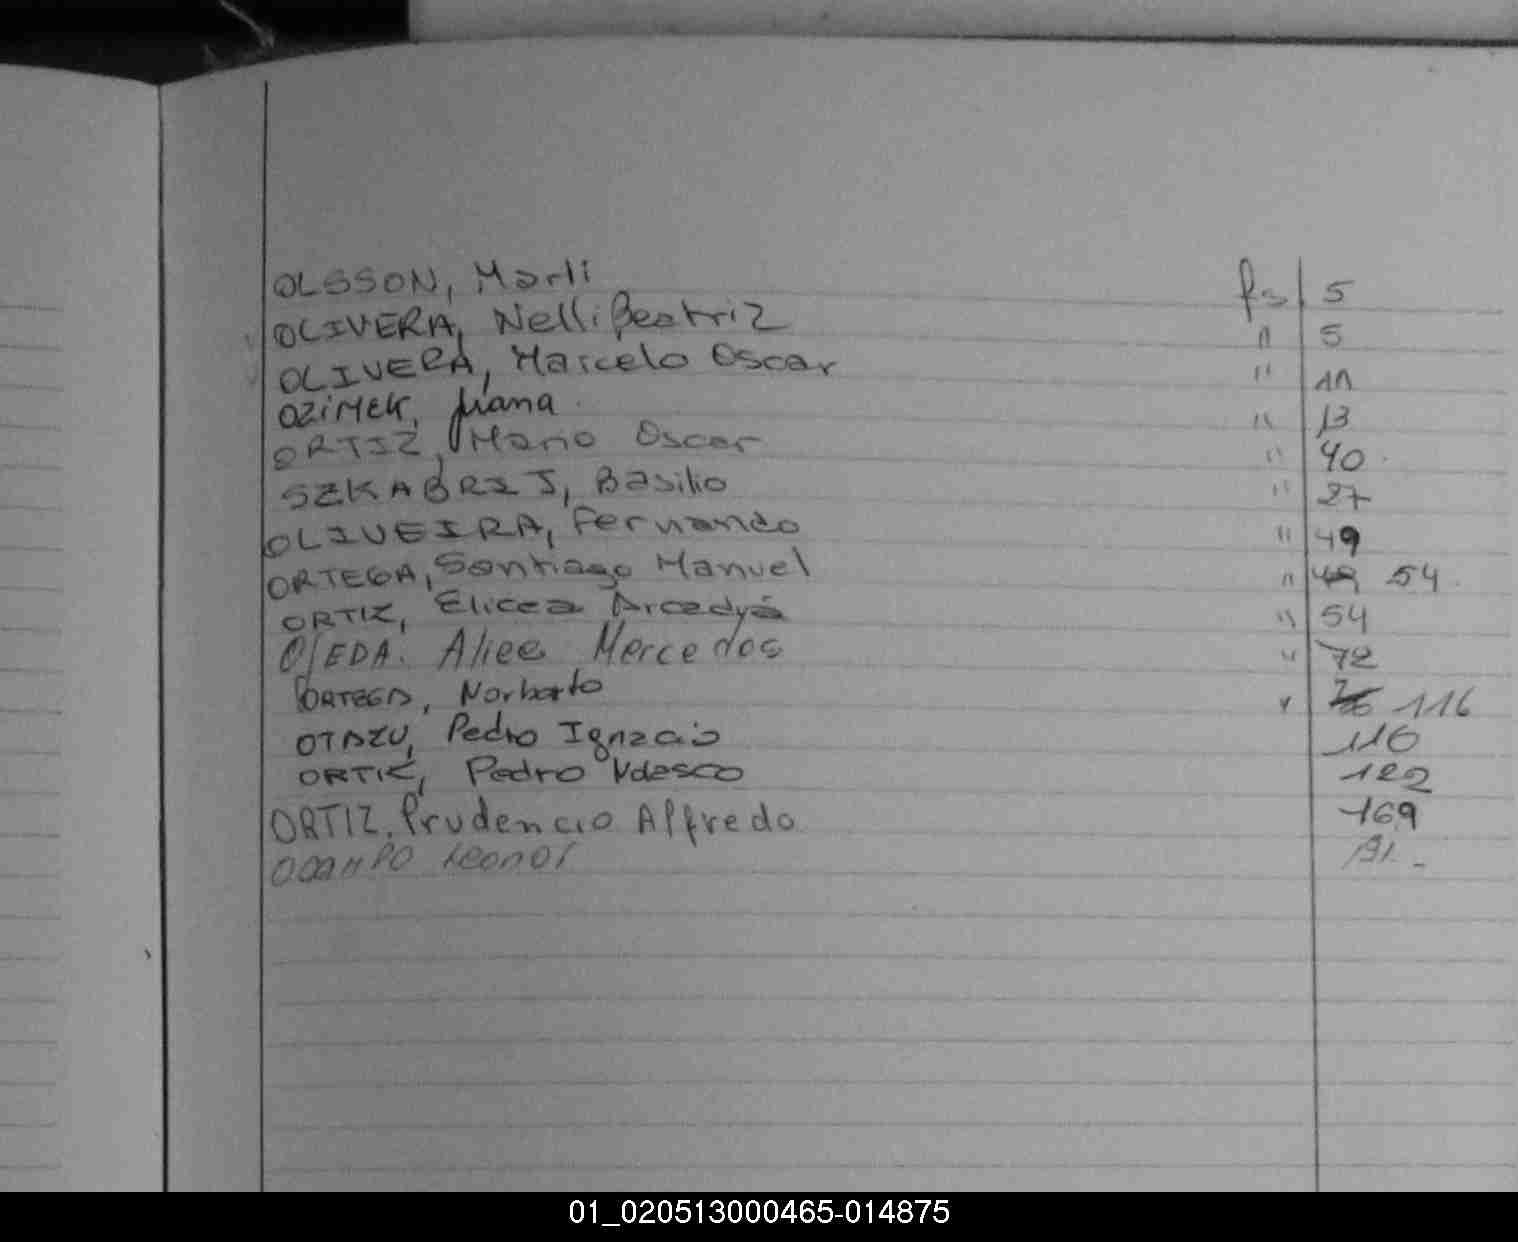 OLSSON, Marli fs 5
OLIVERA, Nelli Beatriz " 5
OLIVERA, Marcelo Oscar " 11
OZIMEK, Juana " 13
ORTIZ, Mario Oscar " 40
SZKABRIJ, Basilio " 27
OLIVEIRA, Fernando " 49
ORTEGA, Santiago Manuel " 49 54
ORTIZ, Elicea " 54
OJEDA. Alice Mercedes " 72
ORTEGA, Norberto " 116
OTAZU, Pedro Ignacio 116
ORTIZ, Pedro 122
ORTIZ, Prudencio Alfredo 169
OCAMPO Leonor 191.
01_020513000465-014875